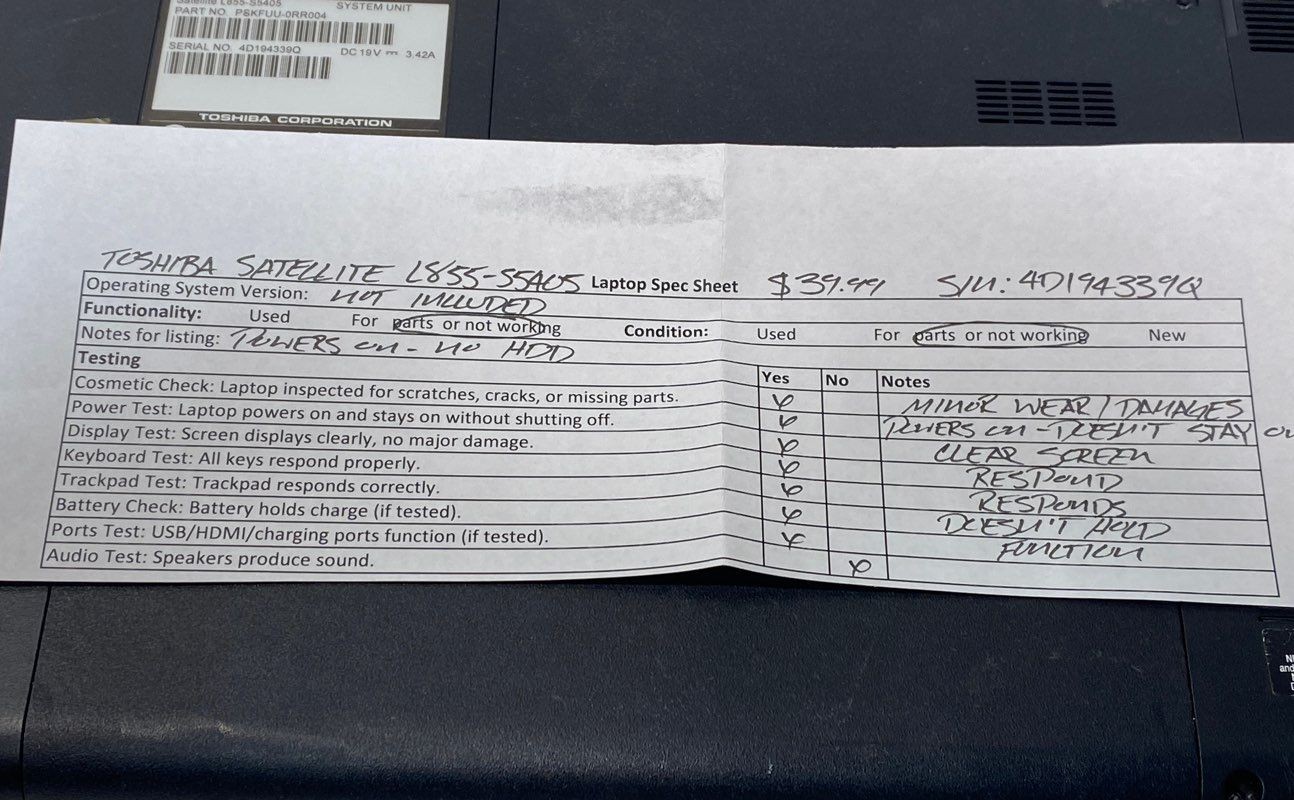 Satellite L855-S5405 SYSTEM UNIT
PART NO. PSKFUU-0RR004
SERIAL NO. 4D194339Q DC 19V 3.42A
TOSHIBA CORPORATION
TOSHIBA SATELLITE L855-S5405 Laptop Spec Sheet $39.99 S/N: 4D194339Q
Operating System Version: NOT INCLUDED
Functionality: Used For parts or not working Condition: Used For parts or not working New
Notes for listing: POWERS ON - NO HDD
Testing Yes No Notes
Cosmetic Check: Laptop inspected for scratches, cracks, or missing parts. MINOR WEAR/DAMAGES
Power Test: Laptop powers on and stays on without shutting off. POWERS ON - DOESN'T STAY ON
Display Test: Screen displays clearly, no major damage. CLEAR SCREEN
Keyboard Test: All keys respond properly. RESPOND
Trackpad Test: Trackpad responds correctly. RESPONDS
Battery Check: Battery holds charge (if tested). DOESN'T HOLD
Ports Test: USB/HDMI/charging ports function (if tested). FUNCTION
Audio Test: Speakers produce sound.